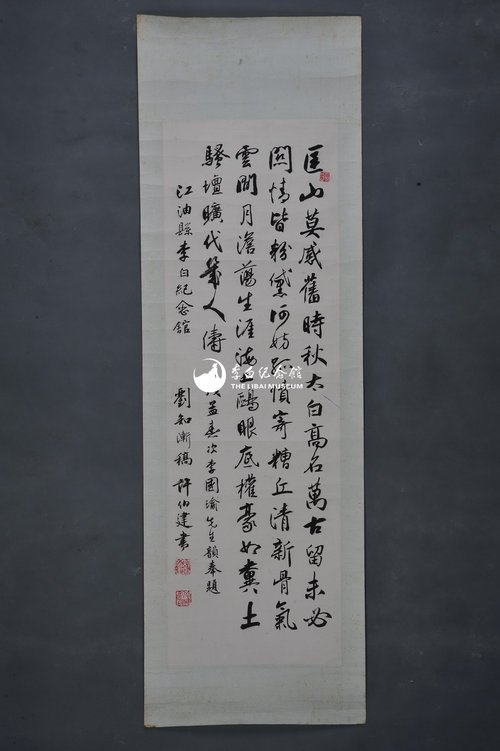 匡山莫感舊時秋太白高名萬古留未必
關情皆粉黛何妨孤憤寄糟丘清新骨氣
雲間月澹蕩生涯海上鷗眼底權豪如糞土
騷壇曠代幾人儔 孟春次李國瑜先生韻奉題
江油縣李白紀念館 劉知漸稿 許伯建書
李白纪念馆
THE LIBAI MUSEUM